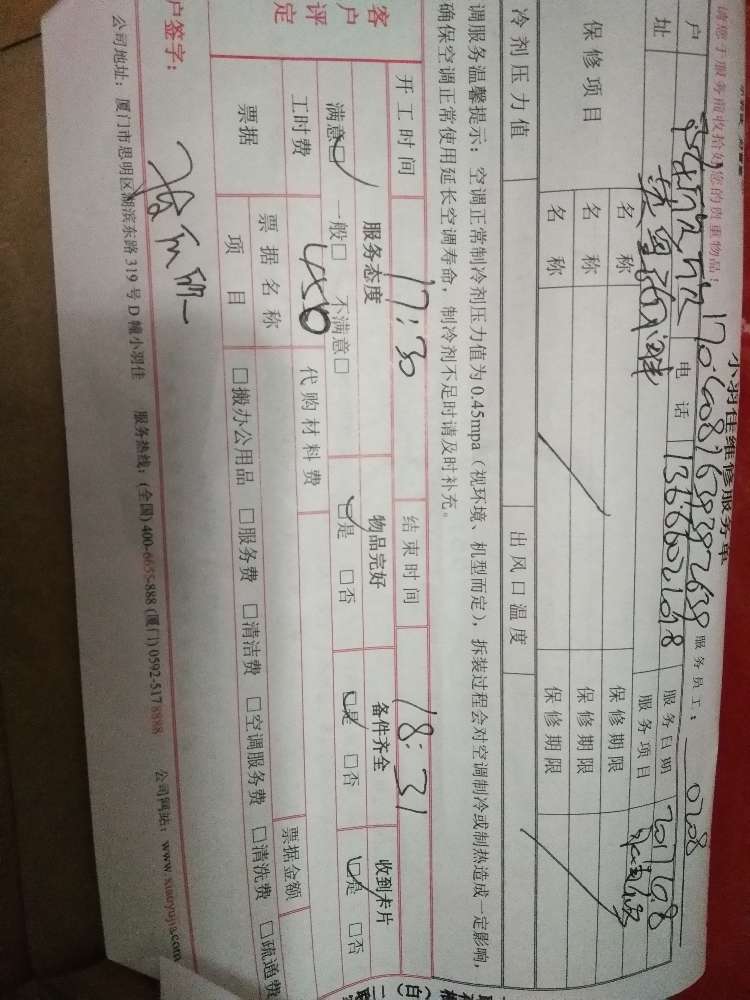 请您于服务前收拾好您的贵重物品!
小羽佳维修服务单
服务员工: 028
户
电话 13666021098
服务日期
址
服务项目
保修项目
名称
保修期限
名称
保修期限
名称
保修期限
冷剂压力值
出风口温度
调服务温馨提示: 空调正常制冷剂压力值为0.45mpa(视环境、机型而定), 拆装过程会对空调制冷或制热造成一定影响,
确保空调正常使用延长空调寿命, 制冷剂不足时请及时补充。
开工时间 17:30 结束时间 18:31
客户评定
服务态度 物品完好 备件齐全 收到卡片
满意□ 一般□ 不满意□ □是 □否 □是 □否 □是 □否
工时费 450 代购材料费
票据 票据名称 票据金额
项目 □搬办公用品 □服务费 □清洁费 □空调服务费 □清洗费 □疏通费
户签字:
公司地址: 厦门市思明区湖滨东路319号D幢小羽佳 服务热线: (全国)400-6655-888 (厦门)0592-5178888 公司网站: www.xiaoyujia.com